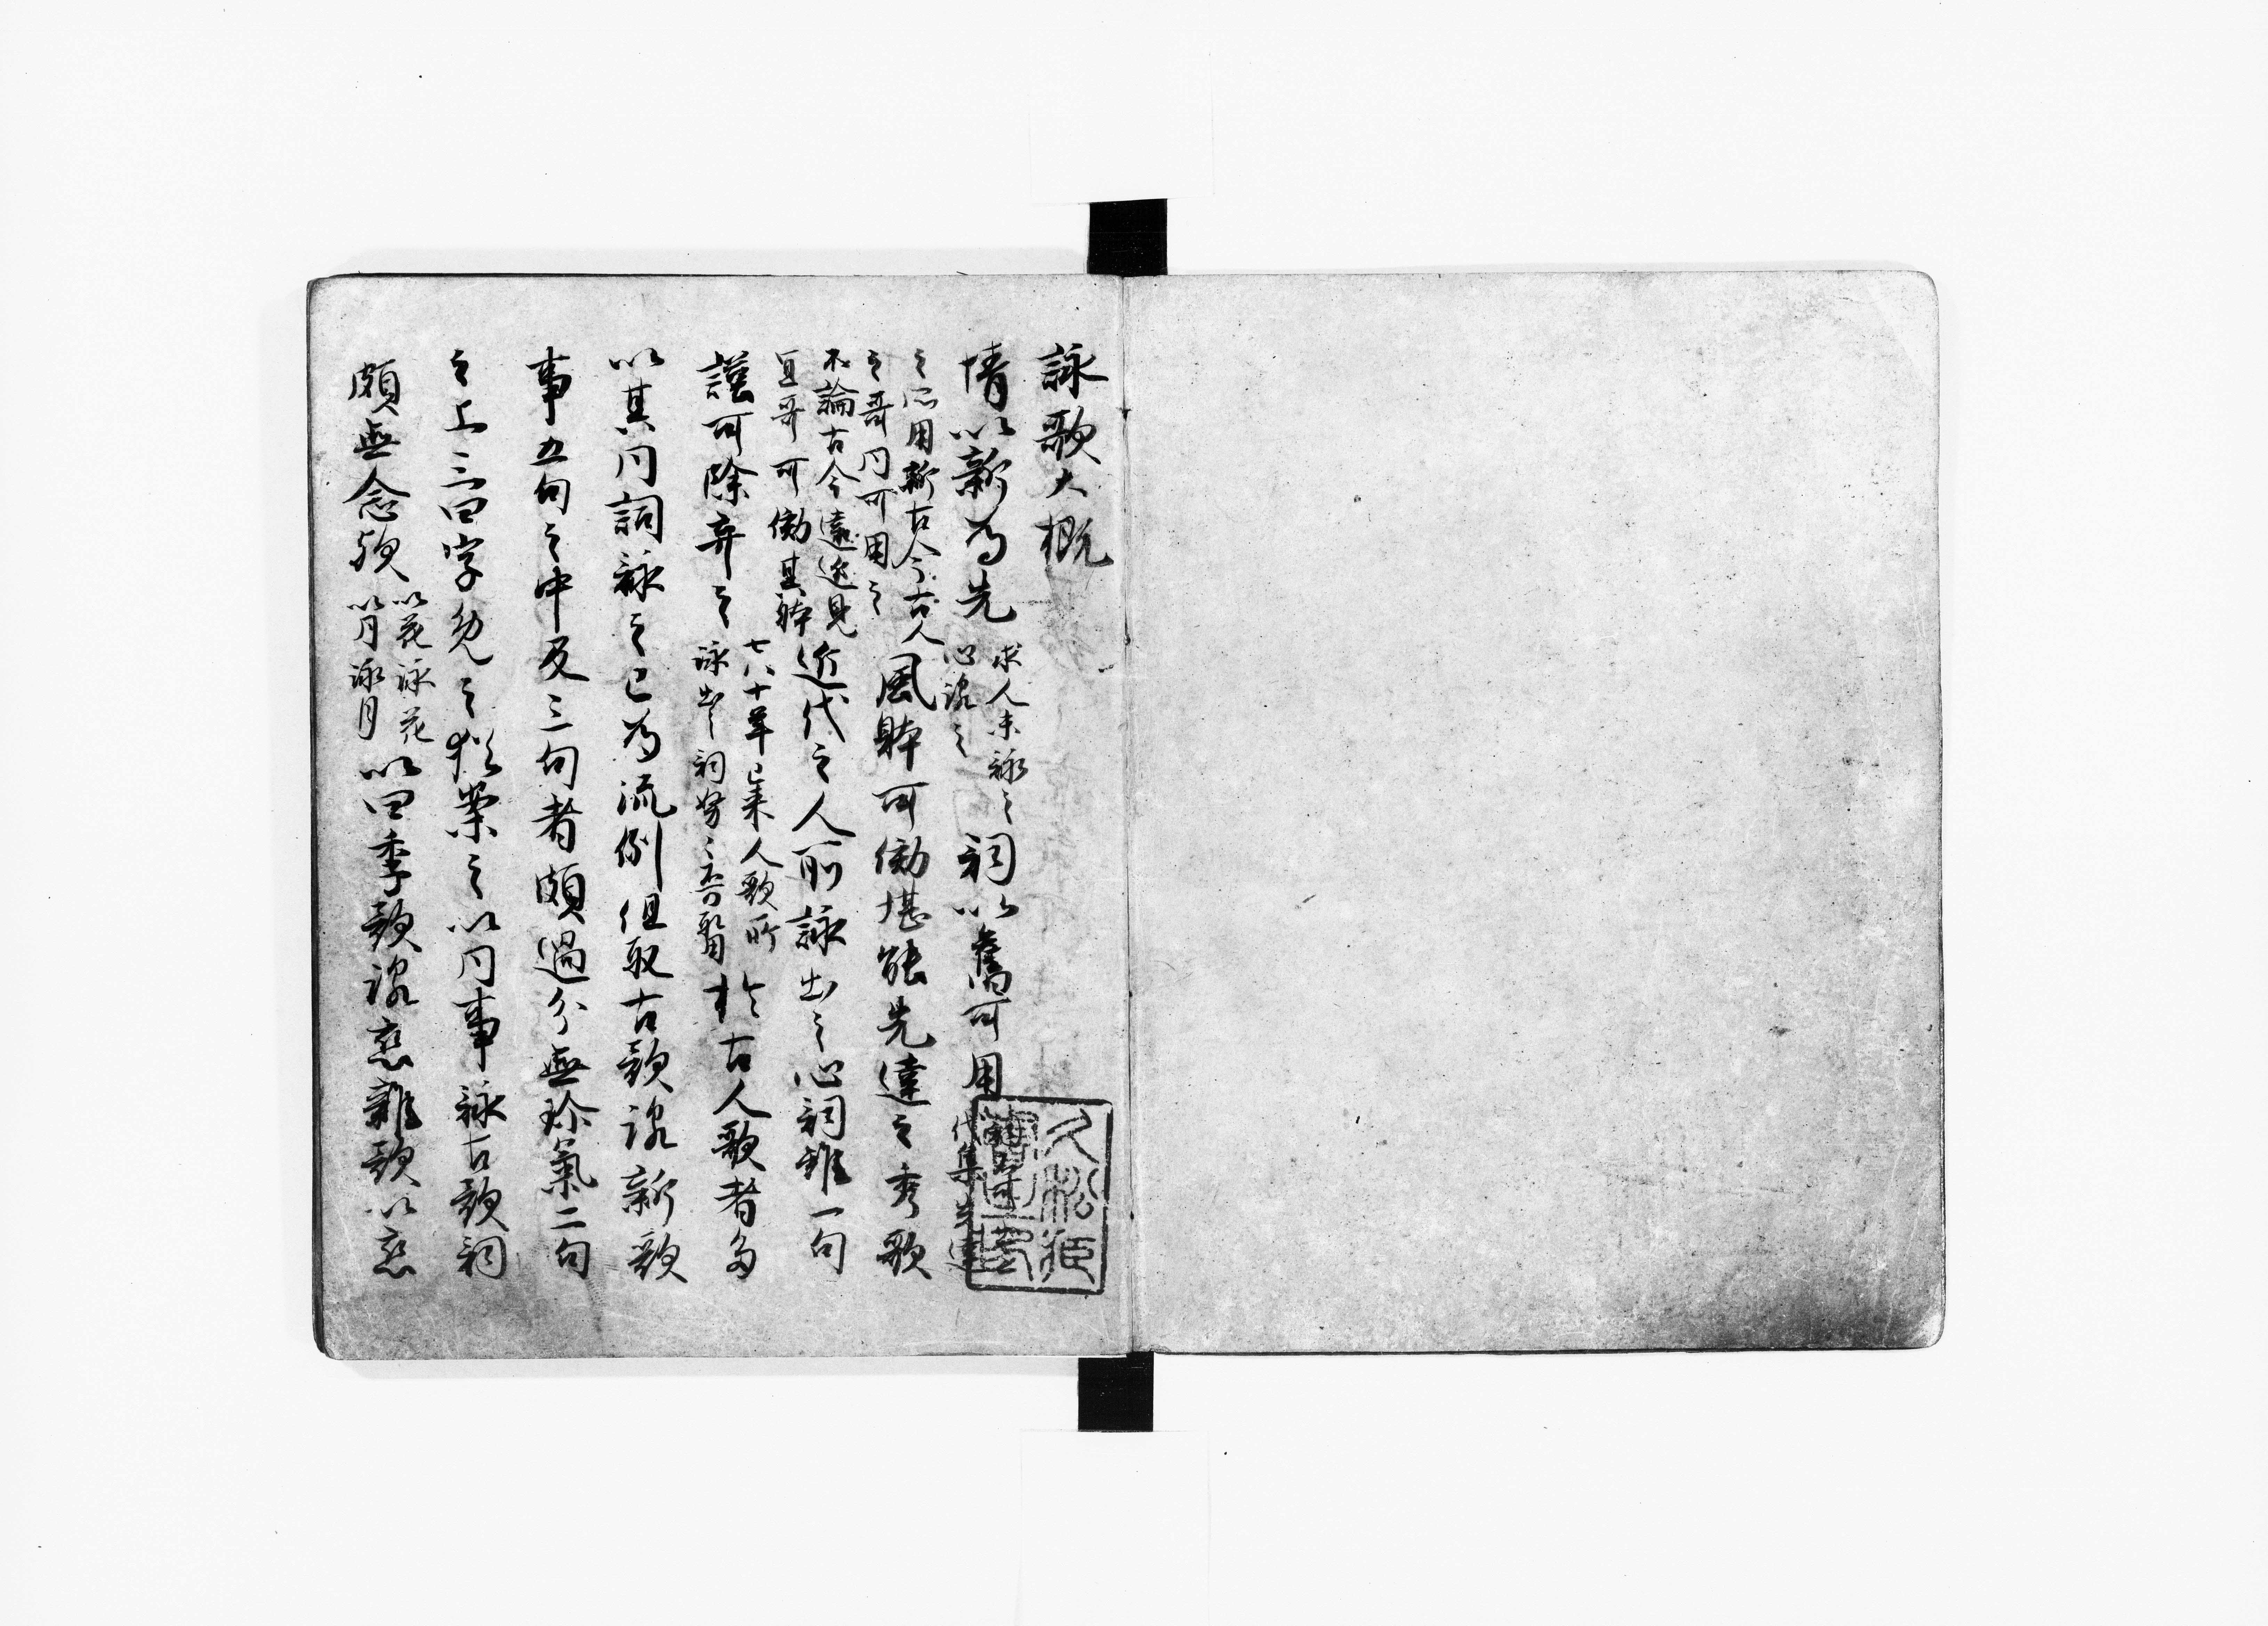 詠歌大概
情以新為先 求人未詠之 心詠之 詞以舊可用 詞不可出三 代集先達
之所用新古今古人 之哥同可用之 風躰可効堪能先達之秀歌
不論古今遠近見 宜哥可効其躰 近代之人所詠出之心詞雖一句
謹可除弃之 七八十年已来人歌所 詠出之詞努々不可取用 於古人歌者多
以其同詞詠之已為流例但取古歌詠新歌
事五句之中及三句者頗過分無珍氣二句
之上三四字免之猶案之以同事詠古歌詞
頗無念歟 以花詠花 以月詠月 以四季歌詠恋雜歌以恋
久松姫